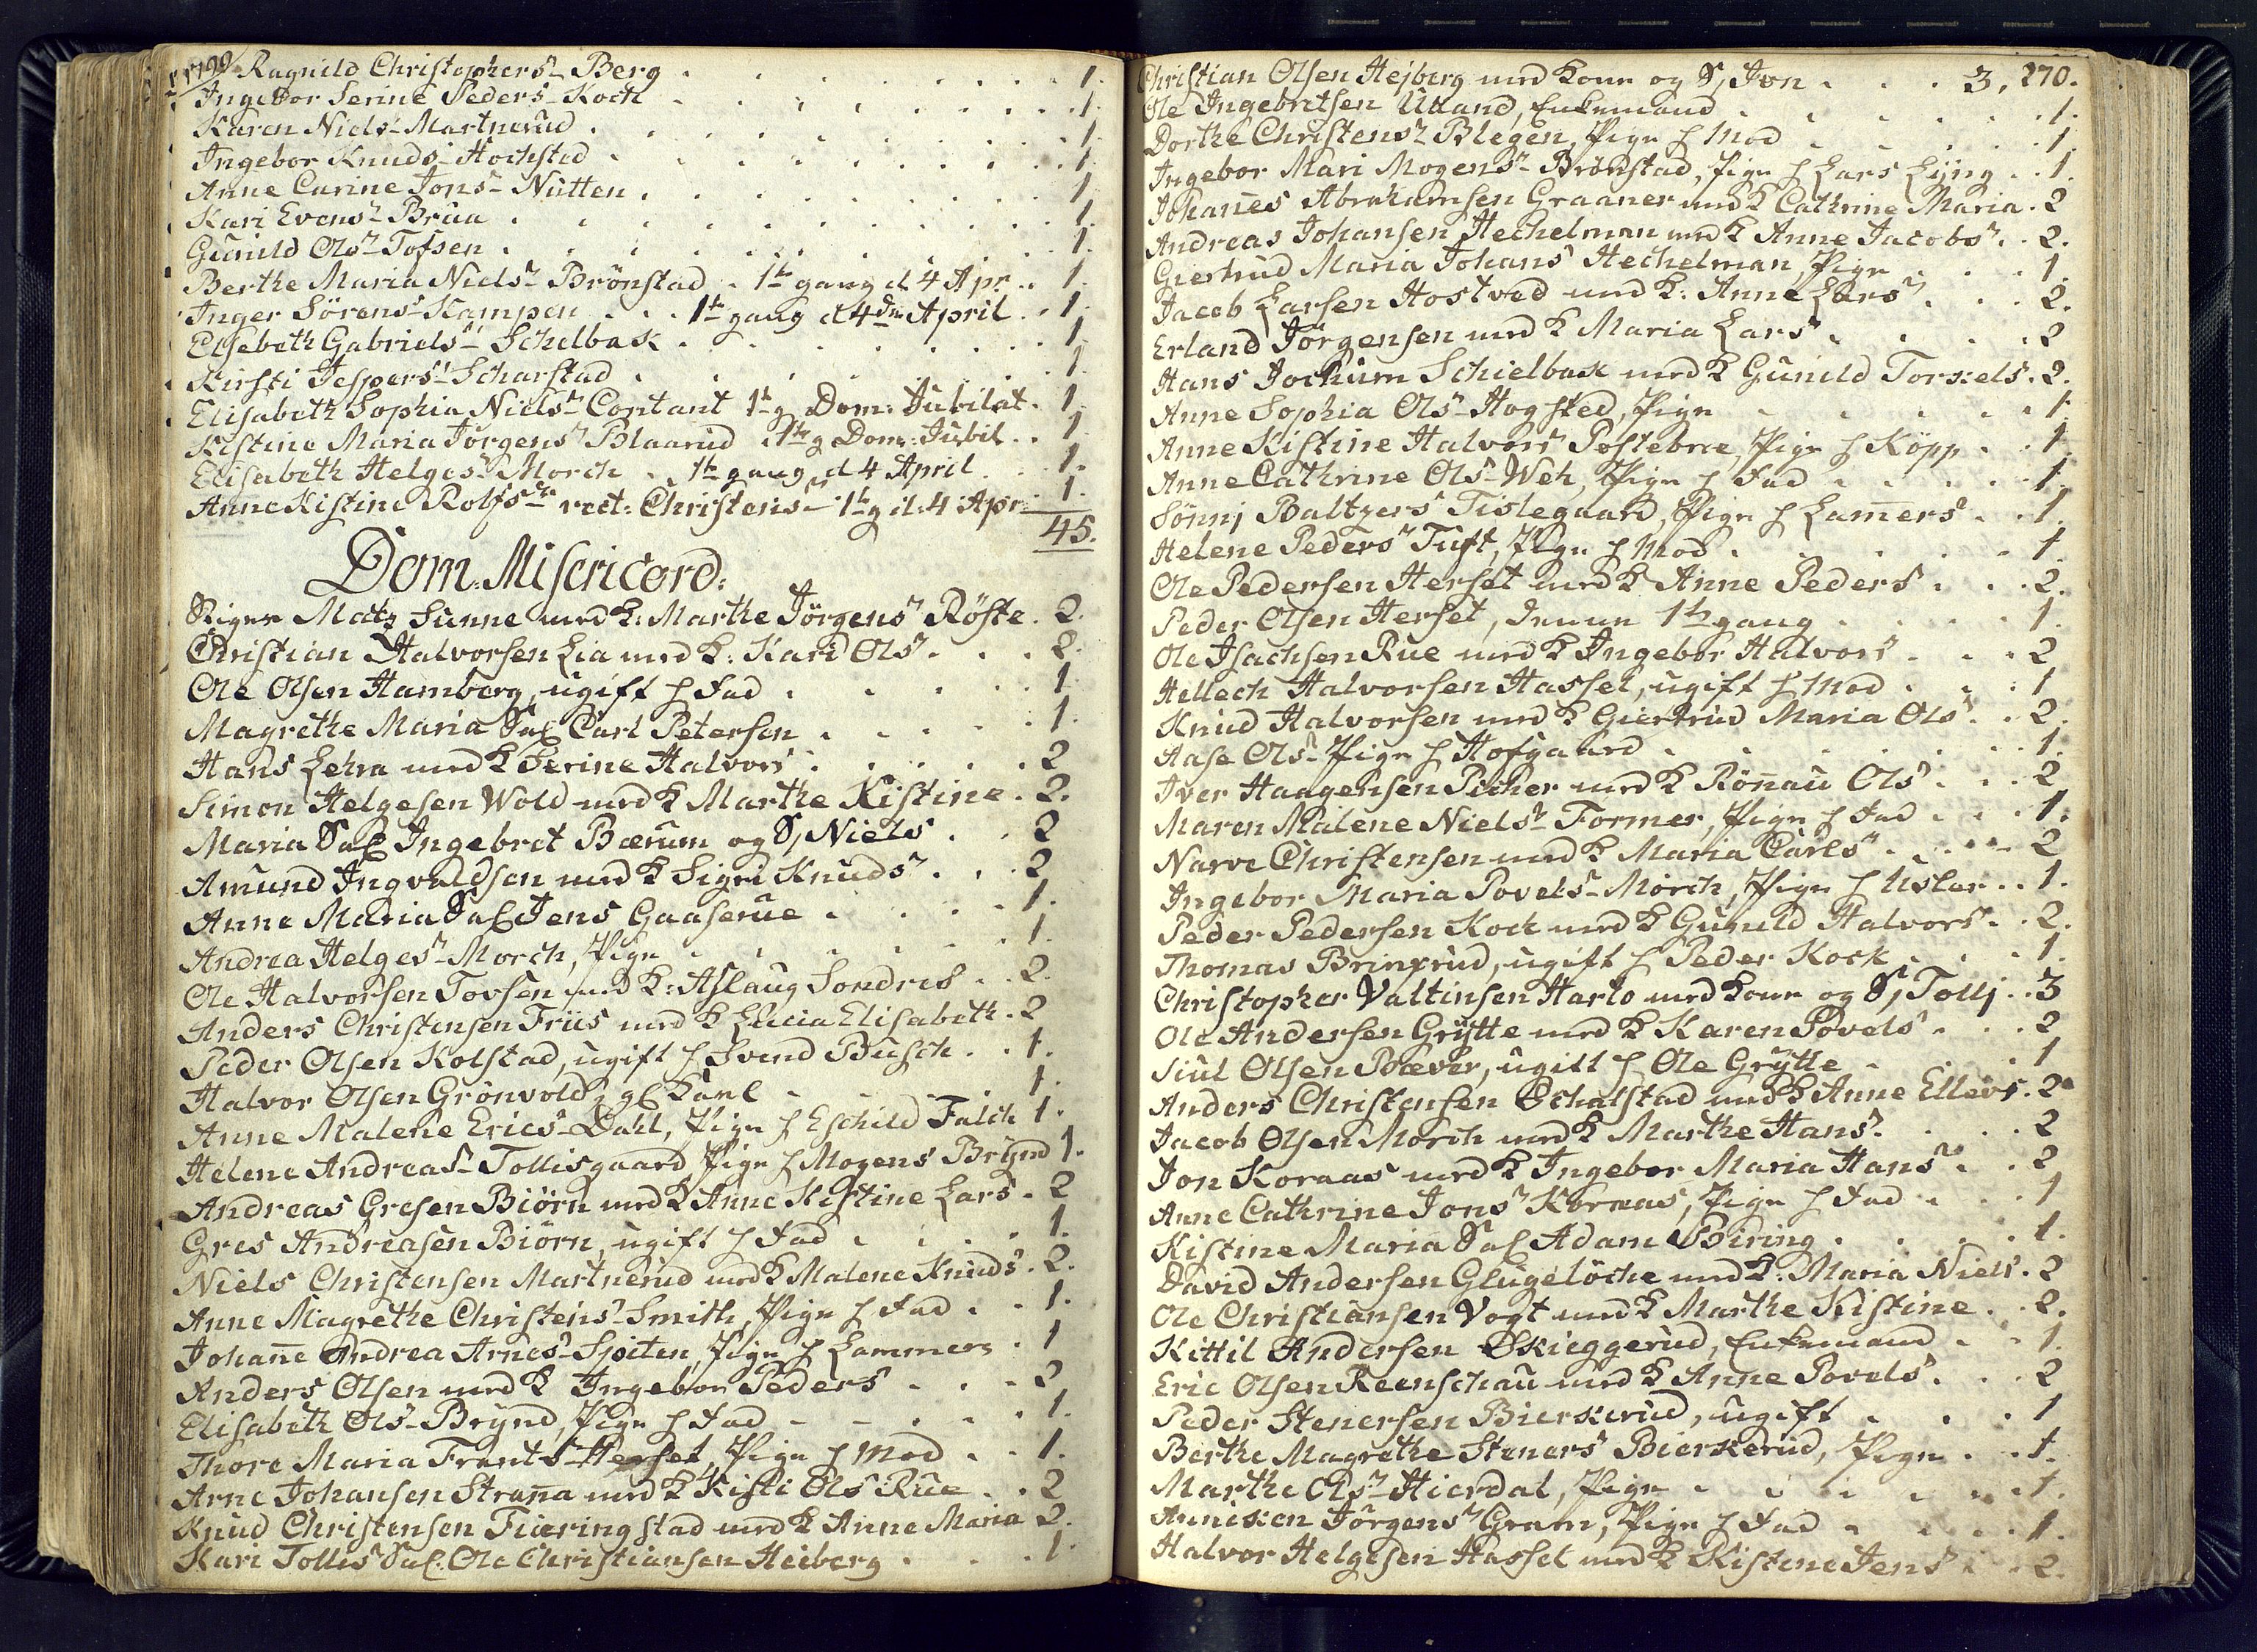 1799 Ragnild Christophers- Berg . . . . . . . . . 1.
Ingebor Serine Peders- Koch . . . . . . . . . 1.
Karen Niels- Martnerud . . . . . . . . . 1.
Ingebor Knuds- Hochsted . . . . . . . . . 1.
Anne Carine Jons- Nutten . . . . . . . . 1.
Kari Evens- Brua . . . . . . . . . . 1.
Gunild Ols- Tofsen . . . . . . . . . 1.
Berthe Maria Niels- Brönstad . 1te gang d 4 Apr . . 1.
Inger Sörens- Kampen . . . 1te gang d 4de April . . 1.
Elsebeth Gabriels- Schelbak . . . . . . . . 1.
Kirsti Jespers- Scharstad . . . . . . . . 1.
Elisabeth Sophia Niels- Contant 1te g Dom: Jubilat . 1.
Kistine Maria Jörgens- Blaarud 1te g Dom: Jubil . . 1.
Elisabeth Helges- Morch . 1te gang d 4 April . . . 1.
Anne Kistine Rolfs- rect: Christens- 1te g d: 4 Apr: 1.
45.
Dom: Misericord:
Signr Matz Sunne med K: Marthe Jörgens- Röste . 2.
Christian Halvorsen Lia med K: Kari Ols- . . . 2.
Ole Olsen Hamberg, ugift h Fad . . . . . 1.
Magrethe Maria Sal Carl Petersen . . . . . 1.
Hans Lehra med K Serine Halvors- . . . . . 2
Simon Helgesen Wold med K Marthe Kistine . 2.
Maria Sal Ingebret Bærum og S, Niels . . . 2
Amund Ingvaldsen med K Sigri Knuds- . . . 2
Anne Maria Sal Jens Gaaserue . . . . . 1.
Andrea Helges- Morch, Pige . . . . . . 1.
Ole Halvorsen Tovsen med K: Aslaug Sondres . . 2.
Anders Christensen Friis med K Lucia Elisabeth . 2
Peder Olsen Kolstad, ugift h Svend Busch . . 1.
Halvor Olsen Grönvold, gl Karl . . . . . 1.
Anne Malene Erics- Dahl, Pige h Eschild Falch 1.
Helene Andreas- Tollisgaard, Pige h Mogens Brynd 1.
Andreas Gresen Biörn med K Anne Kistine Lars- . 2
Gres Andreasen Biörn, ugift h Fad . . . . 1.
Niels Christensen Martnerud med K Malene Knuds- . 2.
Anne Magrethe Christens- Smith, Pige h Fad . . 1.
Johanne Andrea Arnes- Spiten, Pige h Lammers . 1
Anders Olsen med K Ingebor Peders . . . 2
Elisabeth Ols- Brynd, Pige h Fad - - . . . 1.
Thore Maria Frants- Herset, Pige h Mod . . 1.
Arne Johansen Stranna med K Kisti Ols- Rue . . 2
Knud Christensen Fiæringstad med K Anne Maria 2.
Kari Tollis- Sal: Ole Christiansen Heiberg . . . 1.
Christian Olsen Hejberg med Kone og S, Jon . . . 3, 270.
Ole Ingebretsen Ulland, Enkemand . . . . . . 1.
Dorthe Christens- Blegen, Pige h Mod . . . . . 1.
Ingebor Mari Mogens- Brönstad, Pige h Lars Lyng . . 1.
Johannes Abrahamsen Graaner med K Cathrine Maria . 2
Andreas Johansen Hechelman med K Anne Jacobs- . . 2.
Giertrud Maria Johans- Hechelman, Pige . . . 1.
Jacob Larsen Hostved med K: Anne Lars- . . . 2.
Erland Jörgensen med K Maria Lars- . . . . . 2
Hans Jochum Schielbak med K Gunild Torkels- . 2.
Anne Sophia Ols- Hogsted, Pige . . . . . . 1.
Anne Kistine Halvors- Postebrae, Pige h Köpp . . 1
Anne Cathrine Ols- Weh, Pige h Fad . . . . . 1.
Sönnj Baltzers- Tislegaard, Pige h Lammers . . 1.
Helene Peders- Tuft, Pige h Mod . . . . . 1.
Ole Pedersen Herset med K Anne Peders- . . . 2.
Peder Olsen Herset, denne 1te gang . . . . 1.
Ole Isachsen Rue med K Ingebor Halvors- . . . 2
Hellech Halvorsen Hassel, ugift h Mod . . . 1
Knud Halvorsen med K Giertrud Maria Ols- . . 2.
Aase Ols- Pige h Hofgaard . . . . . . . 1.
Iver Haagensen Picher med K Rönnau Ols- . . . 2
Maren Malene Niels- Former, Pige h Fad . . . 1.
Narve Christensen med K Maria Carls- . . . . 2
Ingebor Maria Povels- Mörch, Pige h Uslar . . 1.
Peder Pedersen Koch med K Gunild Halvors- . . 2.
Thomas Brinxrud, ugift h Peder Kock . . . 1.
Christopher Valtinsen Harlo med Kone og S, Tollj . . 3
Ole Andersen Grytte med K Karen Povels- . . . 2
Siul Olsen Bæver, ugift h Ole Grytte . . . 1
Anders Christensen Schalstad med K Anne Ellevs- . 2
Jacob Olsen Morch med K Marthe Hans- . . . 2
Jon Koraas med K Ingebor Maria Hans- . . 2
Anne Cathrine Jons- Koraas, Pige h Fad . . . 1
Kistine Maria Sal Adam Biring . . . . . 1.
David Andersen Glugelöche med K: Maria Niels- . 2
Ole Christiansen Vogt med K Marthe Kistine . . 2.
Kittil Andersen Skieggerud, Enkemand . . 1.
Eric Olsen Reenschau med K Anne Povels- . . . 2
Peder Stenersen Bierkerud, ugift . . . . 1
Berthe Magrethe Steners- Bierkerud, Pige . . 1.
Marthe Ols- Hierdal, Pige . . . . . . 1.
Anniken Jörgens- Gram, Pige h Fad . . . . 1.
Halvor Helgesen Hassel med K Kistene Jens- . . 2.